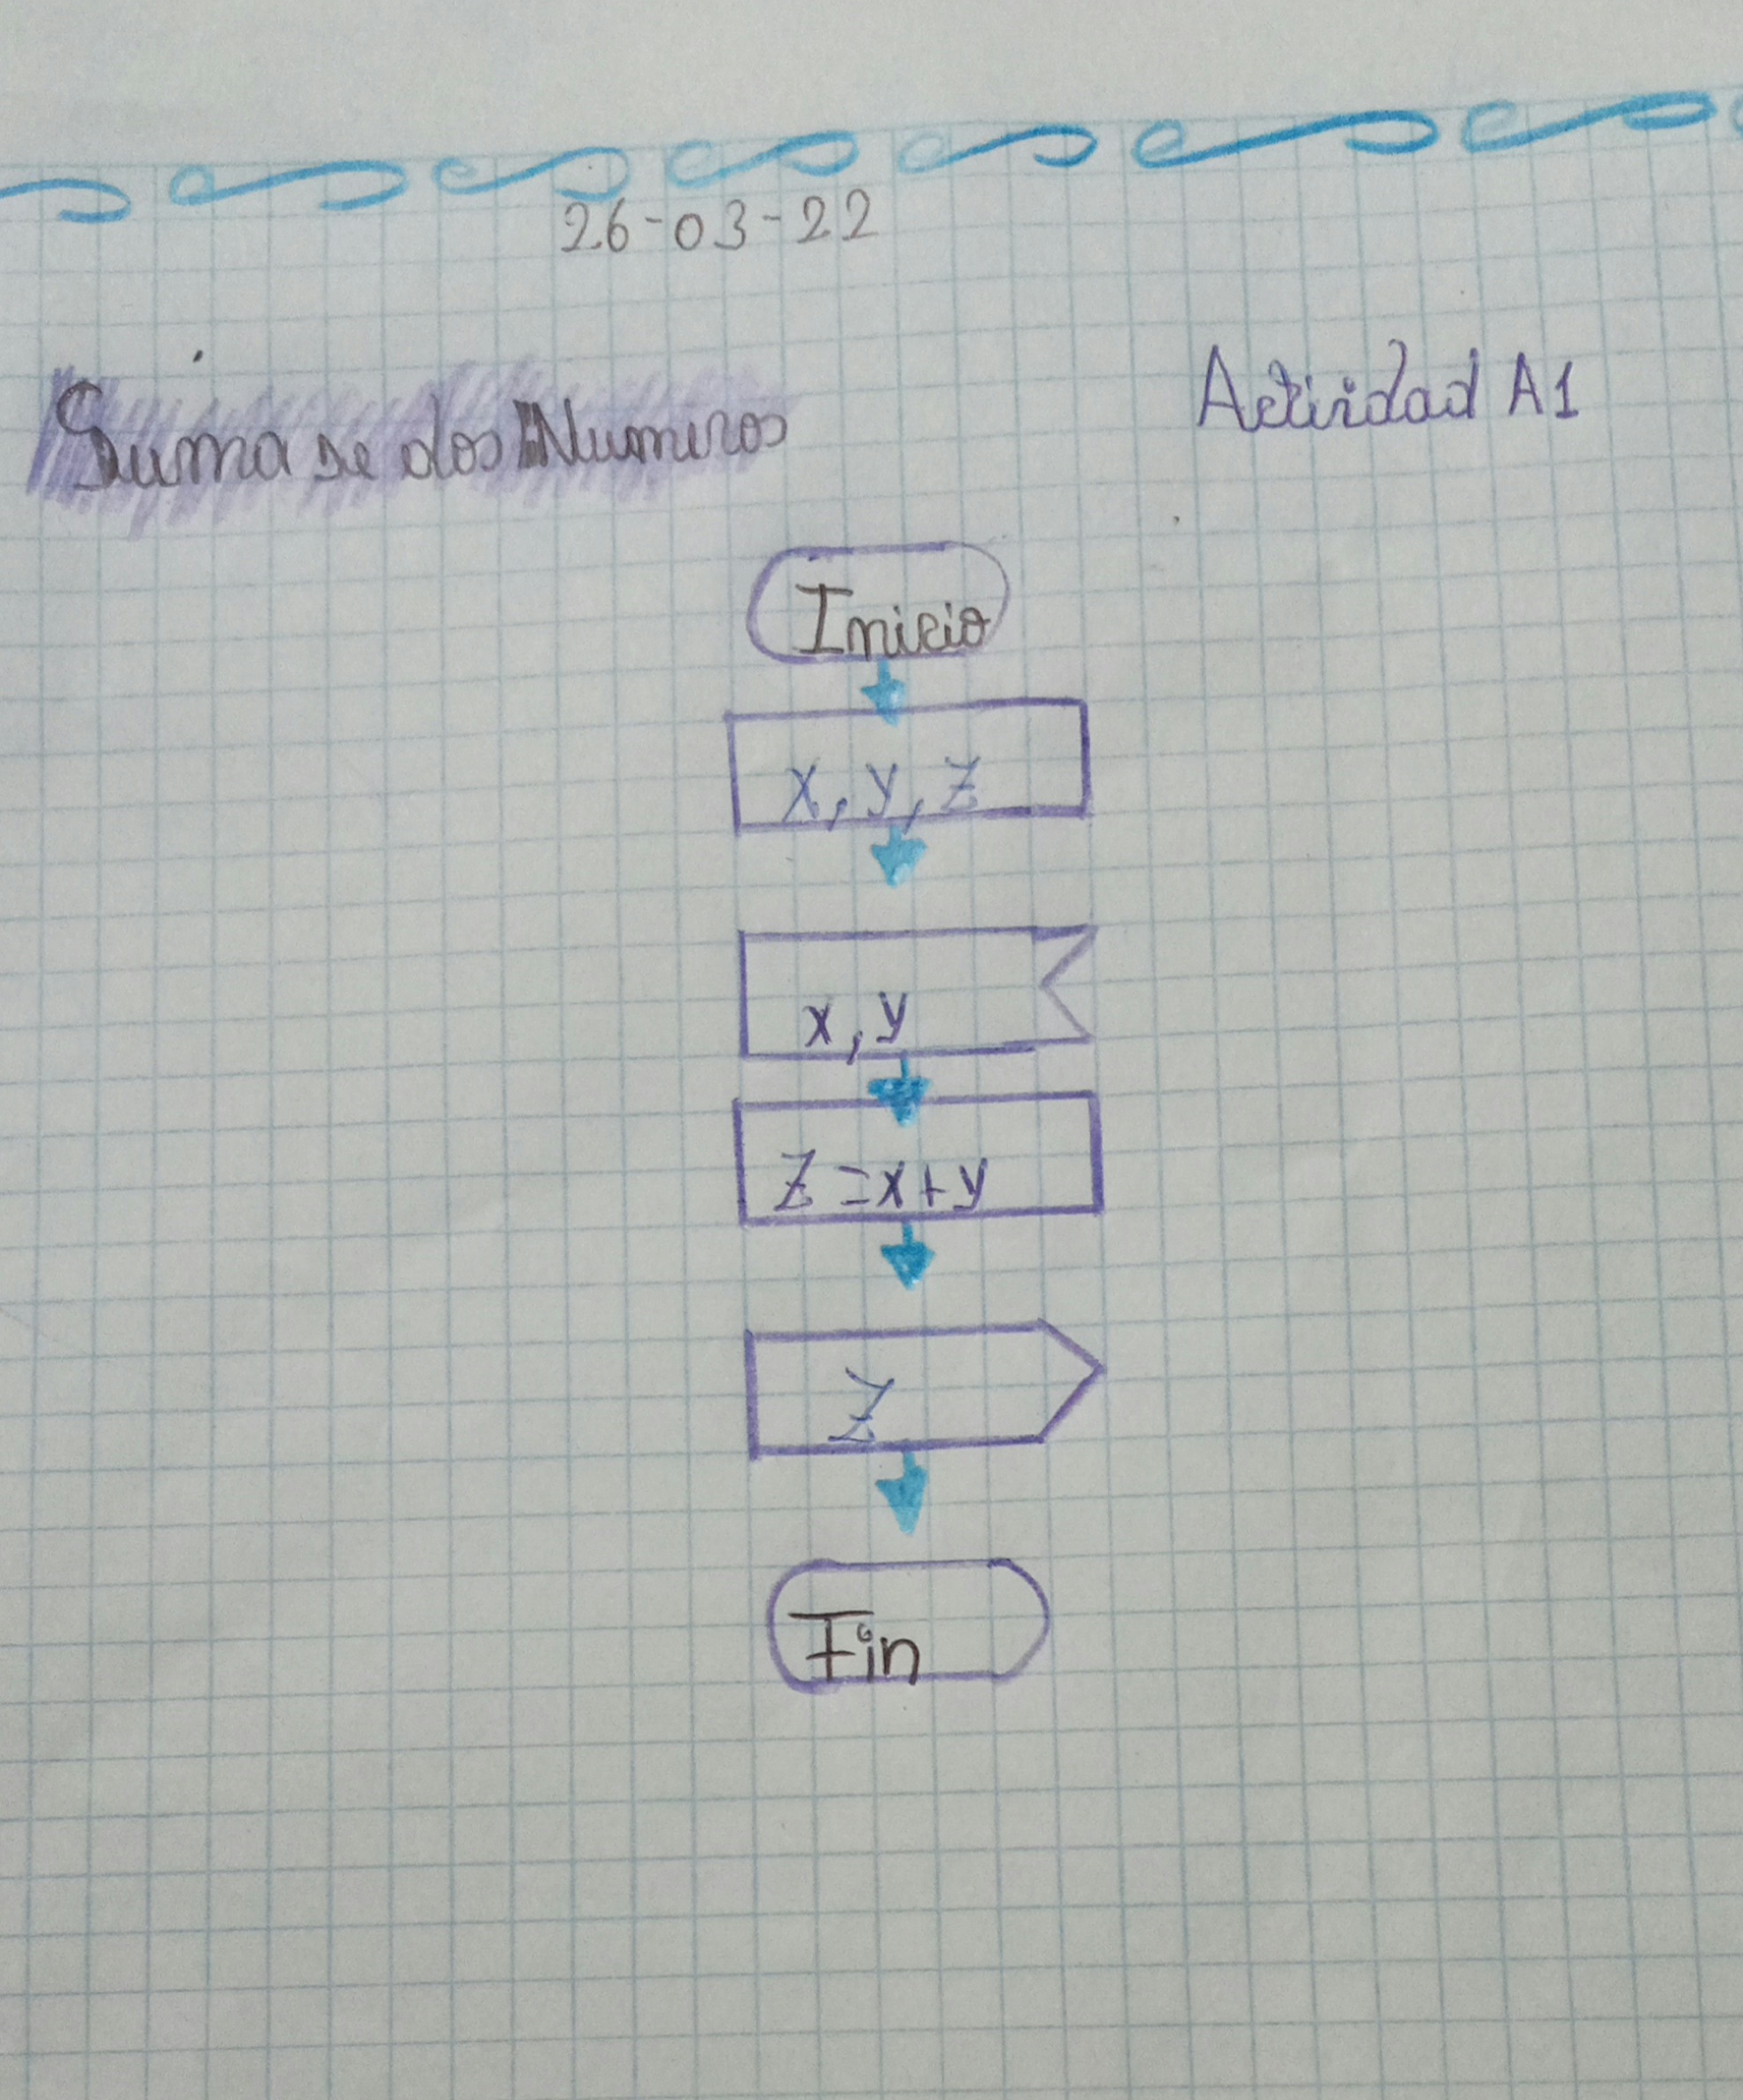 26-03-22
Suma de dos Numeros
Actividad A1
Inicio
X, y, Z
x, y
Z = x + y
Z
Fin